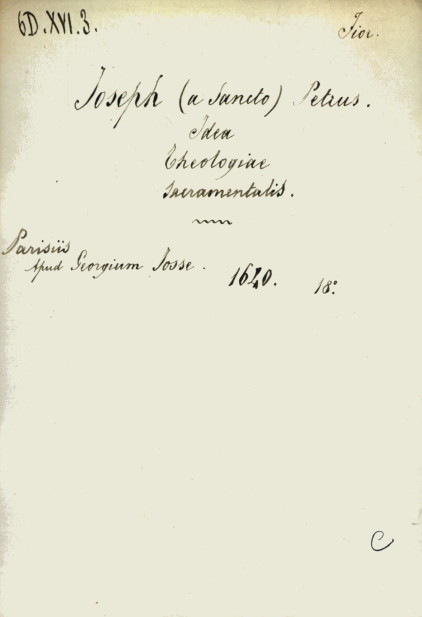 6D.XVI.3.
Fior.
Joseph (a Sancto) Petrus.
Idea
Theologiae
Sacramentalis.
Parisiis
Apud Georgium Josse.
1640. 18º
C